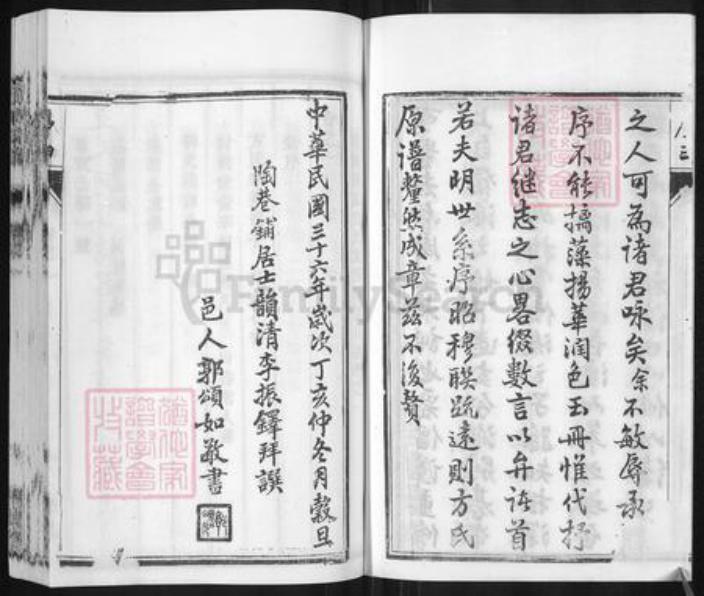 之人可為諸君咏矣余不敏辱承
序不能摛藻揚華潤色玉冊惟代抒
諸君继志之心畧缀數言以弁诸首
若夫明世系序昭穆聯疏遠則方氏
原谱釐然成章兹不復贅
中華民國三十六年歲次丁亥仲冬月穀旦
陶巷鋪居士韻清李振鐸拜譔
邑人郭頌如敬書
FamilySearch